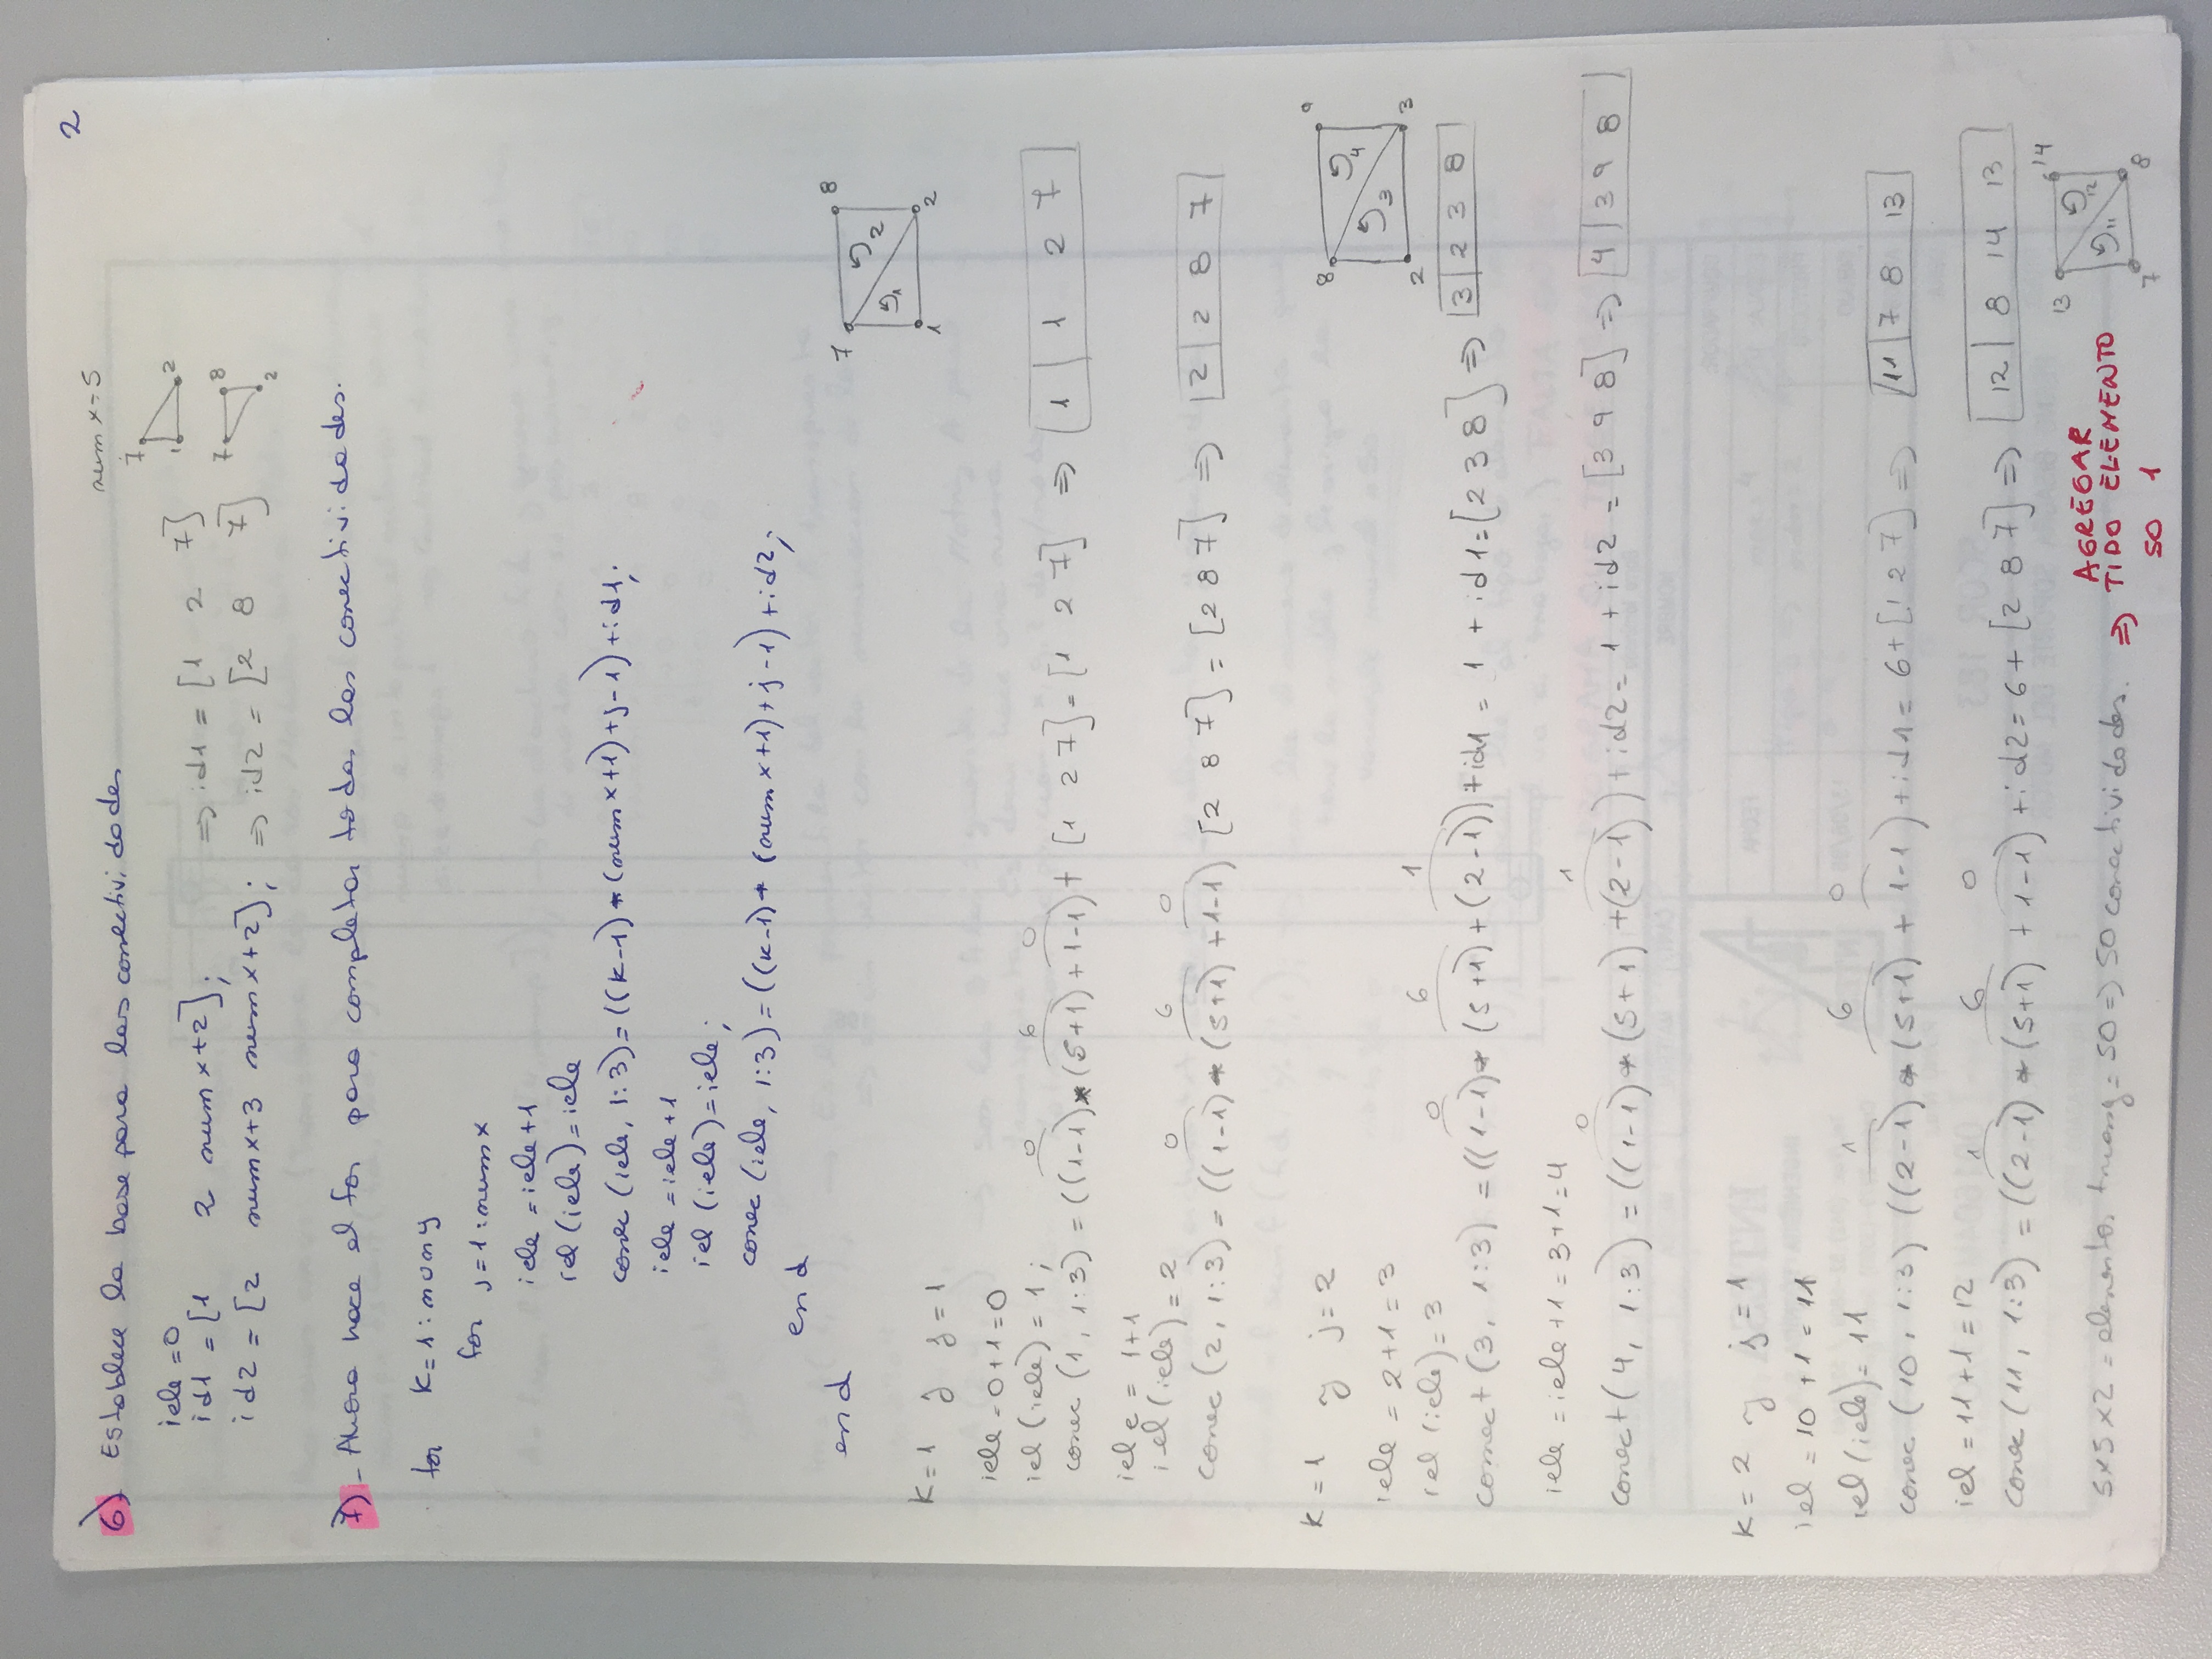 2
6) Establece la base para las conectividades
num x=5
iele =0
id1 =[1 2 num x+2]; => id1 = [1 2 7]
7
1 2
id2 =[2 numx+3 numx+2]; => id2 = [2 8 7]
7 8
2
7)- Ahora hace el for para completar todas las conectividades.
for k=1:numy
for j=1:numx
iele =iele+1
iel (iele)=iele
conec (iele, 1:3)=((k-1)*(num x+1)+j-1)+id1;
iele =iele+1
iel (iele)=iele;
conec (iele, 1:3)=((k-1)*(num x+1)+j-1)+id2;
end
end
7 8
1 2
1 2
k=1 y j=1
iele=0+1=0
iel (iele)=1;
0 6 0
conec (1, 1:3) = ((1-1)*(5+1)+1-1)+ [1 2 7]=[1 2 7] => 1 | 1 2 7
iele = 1+1
iel(iele)=2
0 6 0
conec (2, 1:3) = ((1-1)*(5+1)+1-1) [2 8 7]=[2 8 7] => 2 | 2 8 7
k=1 y j=2
8 9
3 4
2 3
iele =2+1=3
iel (iele)=3
0 6 1
conect (3, 1:3) =((1-1)*(5+1)+(2-1))+id1= 1 + id1=[2 3 8] => 3 | 2 3 8
iele =iele+1=3+1=4
0 1
conect(4, 1:3) =((1-1)*(5+1)+(2-1))+id2= 1 + id2 = [3 9 8] => 4 | 3 9 8
k=2 y j=1
iel =10 +1 = 11
iel (iele)=11
1 6 0
conec (10, 1:3) ((2-1)*(5+1)+1-1)+id1= 6+[1 2 7] => 11 | 7 8 13
iel =11+1=12
1 6 0
conec (11, 1:3) =((2-1)*(5+1)+1-1)+id2=6+[2 8 7] => 12 | 8 14 13
13 14
11 12
7 8
5x5x2=elementos triang=50=>50 conectividades. => AGREGAR
TIPO ELEMENTO
50 1